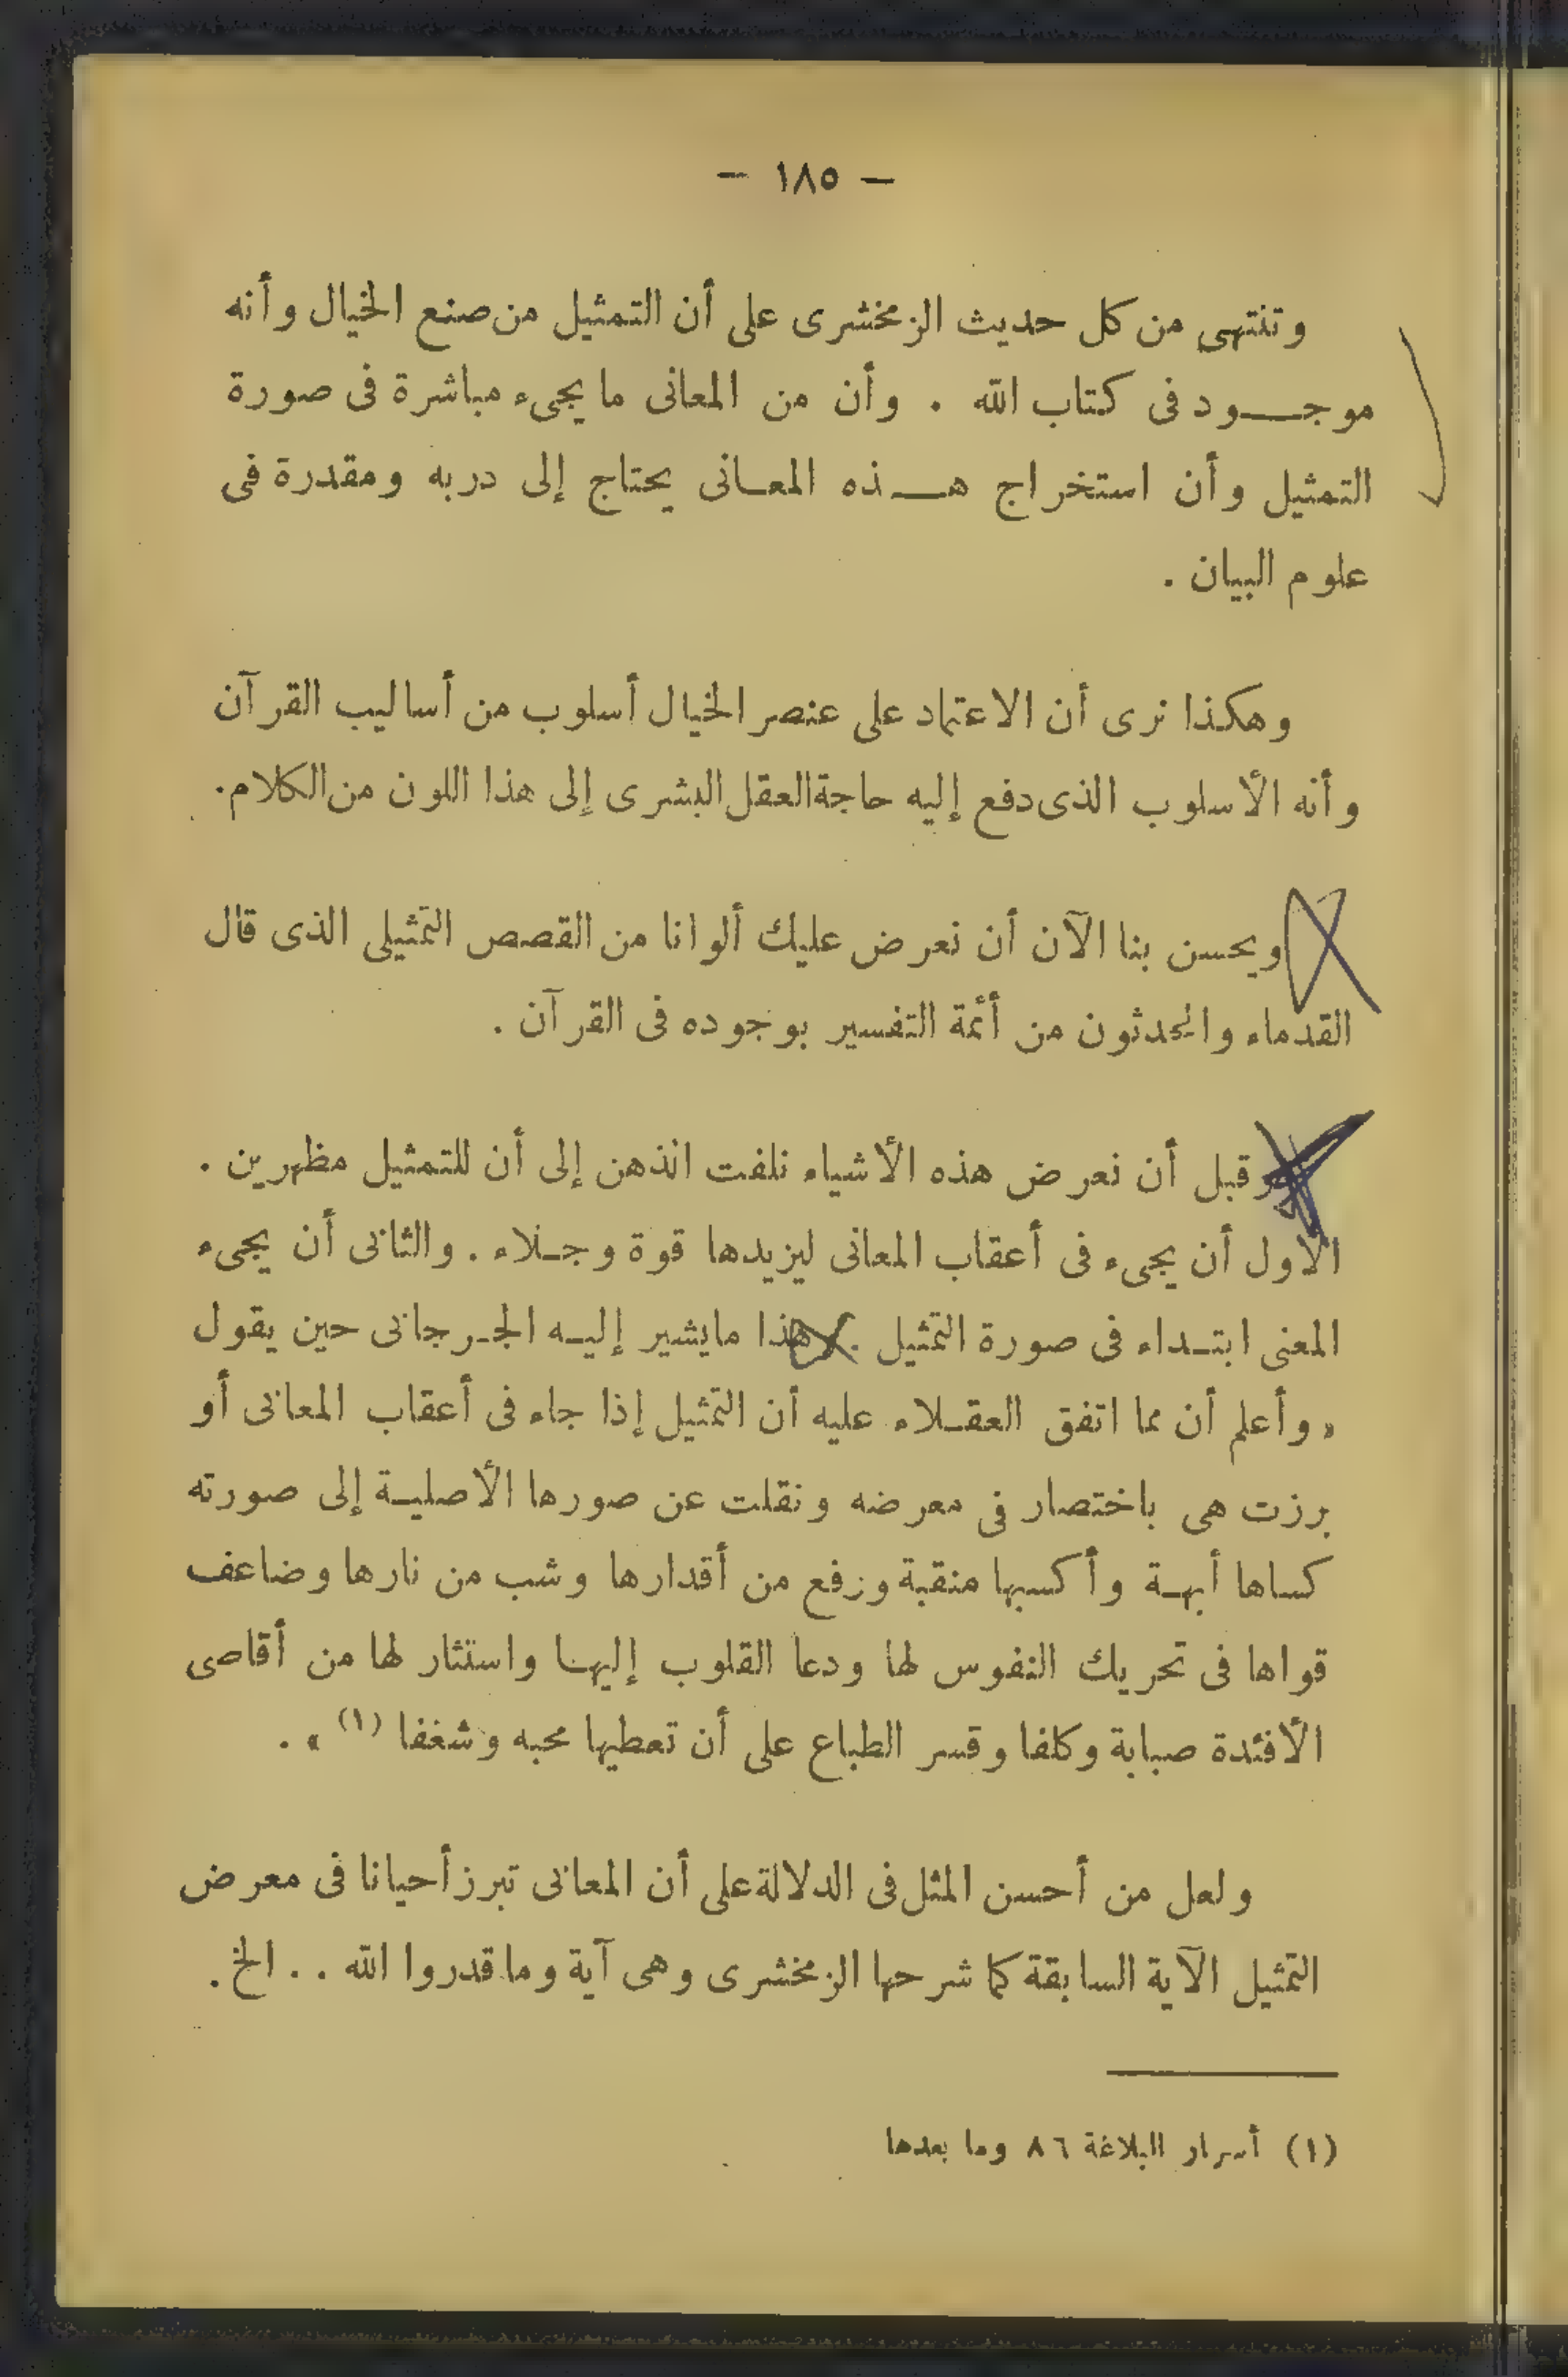 — ١٨٥ —
وتنتهى من كل حديث الزمخشرى على أن التمثيل من صنع الخيال وأنه
موجـــود فى كتاب الله . وأن من المعانى ما يجىء مباشرة فى صورة
التمثيل وأن استخراج هـــذه المعـانى يحتاج إلى دربه ومقدرة فى
علوم البيان .
وهكذا نرى أن الاعتماد على عنصر الخيال أسلوب من أساليب القرآن
وأنه الأسلوب الذى دفع إليه حاجة العقل البشرى إلى هذا اللون من الكلام .
ويحسن بنا الآن أن نعرض عليك ألوانا من القصص التمثيلى الذى قال
القدماء والمحدثون من أئمة التفسير بوجوده فى القرآن .
وقبل أن نعرض هذه الأشياء نلفت الذهن إلى أن للتمثيل مظهرين .
الأول أن يجىء فى أعقاب المعانى ليزيدها قوة وجـلاء . والثانى أن يجىء
المعنى ابتـداء فى صورة التمثيل . هذا ما يشير إليـه الجـرجانى حين يقول
« وأعلم أن مما اتفق العقـلاء عليه أن التمثيل إذا جاء فى أعقاب المعانى أو
برزت هى باختصار فى معرضه ونقلت عن صورها الأصليـة إلى صورته
كساها أبهـة وأكسبها منقبة ورفع من أقدارها وشب من نارها وضاعف
قواها فى تحريك النفوس لها ودعا القلوب إليهـا واستثار لها من أقاصى
الأفئدة صبابة وكلفا وقسر الطباع على أن تعطيها محبه وشغفا (١) » .
ولعل من أحسن المثل فى الدلالة على أن المعانى تبرز أحيانا فى معرض
التمثيل الآية السابقة كما شرحها الزمخشرى وهى آية وما قدروا الله . . الخ .
(١) أسرار البلاغة ٨٦ وما بعدها